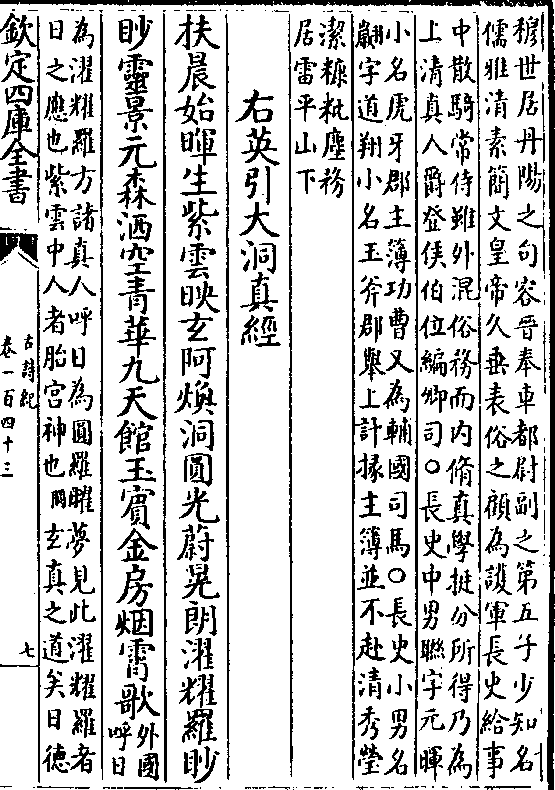 穆世居丹陽之句容晉奉車都尉副之第五子少知名
儒雅清素簡文皇帝久垂表俗之顧為護軍長史給事
中散騎常侍雖外混俗務而内脩真學挺分所得乃為
上清真人爵登侯伯位編卿司○長史中男聯字元暉
小名虎牙郡主簿功曹又為輔國司馬○長史小男名
翽字道翔小名玉斧郡舉上計掾主簿並不赴清秀瑩
潔糠粃塵務
居雷平山下
右英引大洞真經
扶晨始暉生紫雲映玄阿煥洞圓光蔚晃朗濯耀羅眇
眇靈景元森洒空青華九天館玉賓金房烟霄歌
外國
呼日
為濯耀羅方諸真人呼日為圓羅曜夢見此濯耀羅者
日之應也紫雲中人者胎宮神也開玄真之道矣日德
欽定四庫全書
古詩紀
卷一百四十三
七